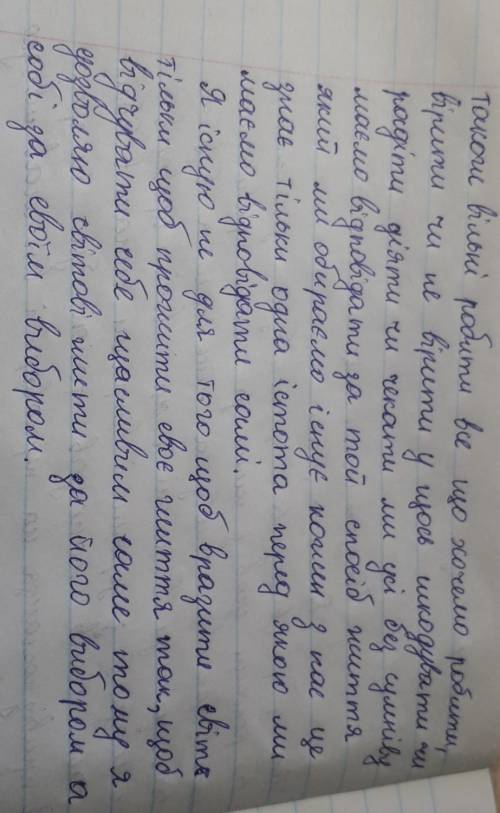 також вільні робити все що хочемо робити,
вірити чи не вірити у щось шкодувати чи
радіти діяти чи чекати ми усі без сумніву
маємо відповідати за той спосіб життя
який ми обираємо існує кожен з нас це
знає тільки одна істота перед якою ми
маємо відповідати самі.
Я існую не для того щоб вразити світ
тільки щоб прожити своє життя так, щоб
відчувати себе щасливим саме тому я
дозволяю світові жити за його вибором а
собі за своїм вибором.